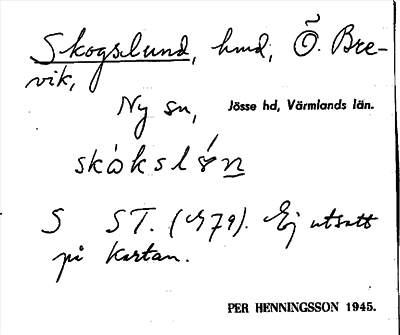 Skogslund, hmd, Ö. Bre-
vik,
Ny sn, Jösse hd, Värmlands län.
skὼkslón
S ST. (  79). Ej utsatt
på kartan.
PER HENNINGSSON 1945.